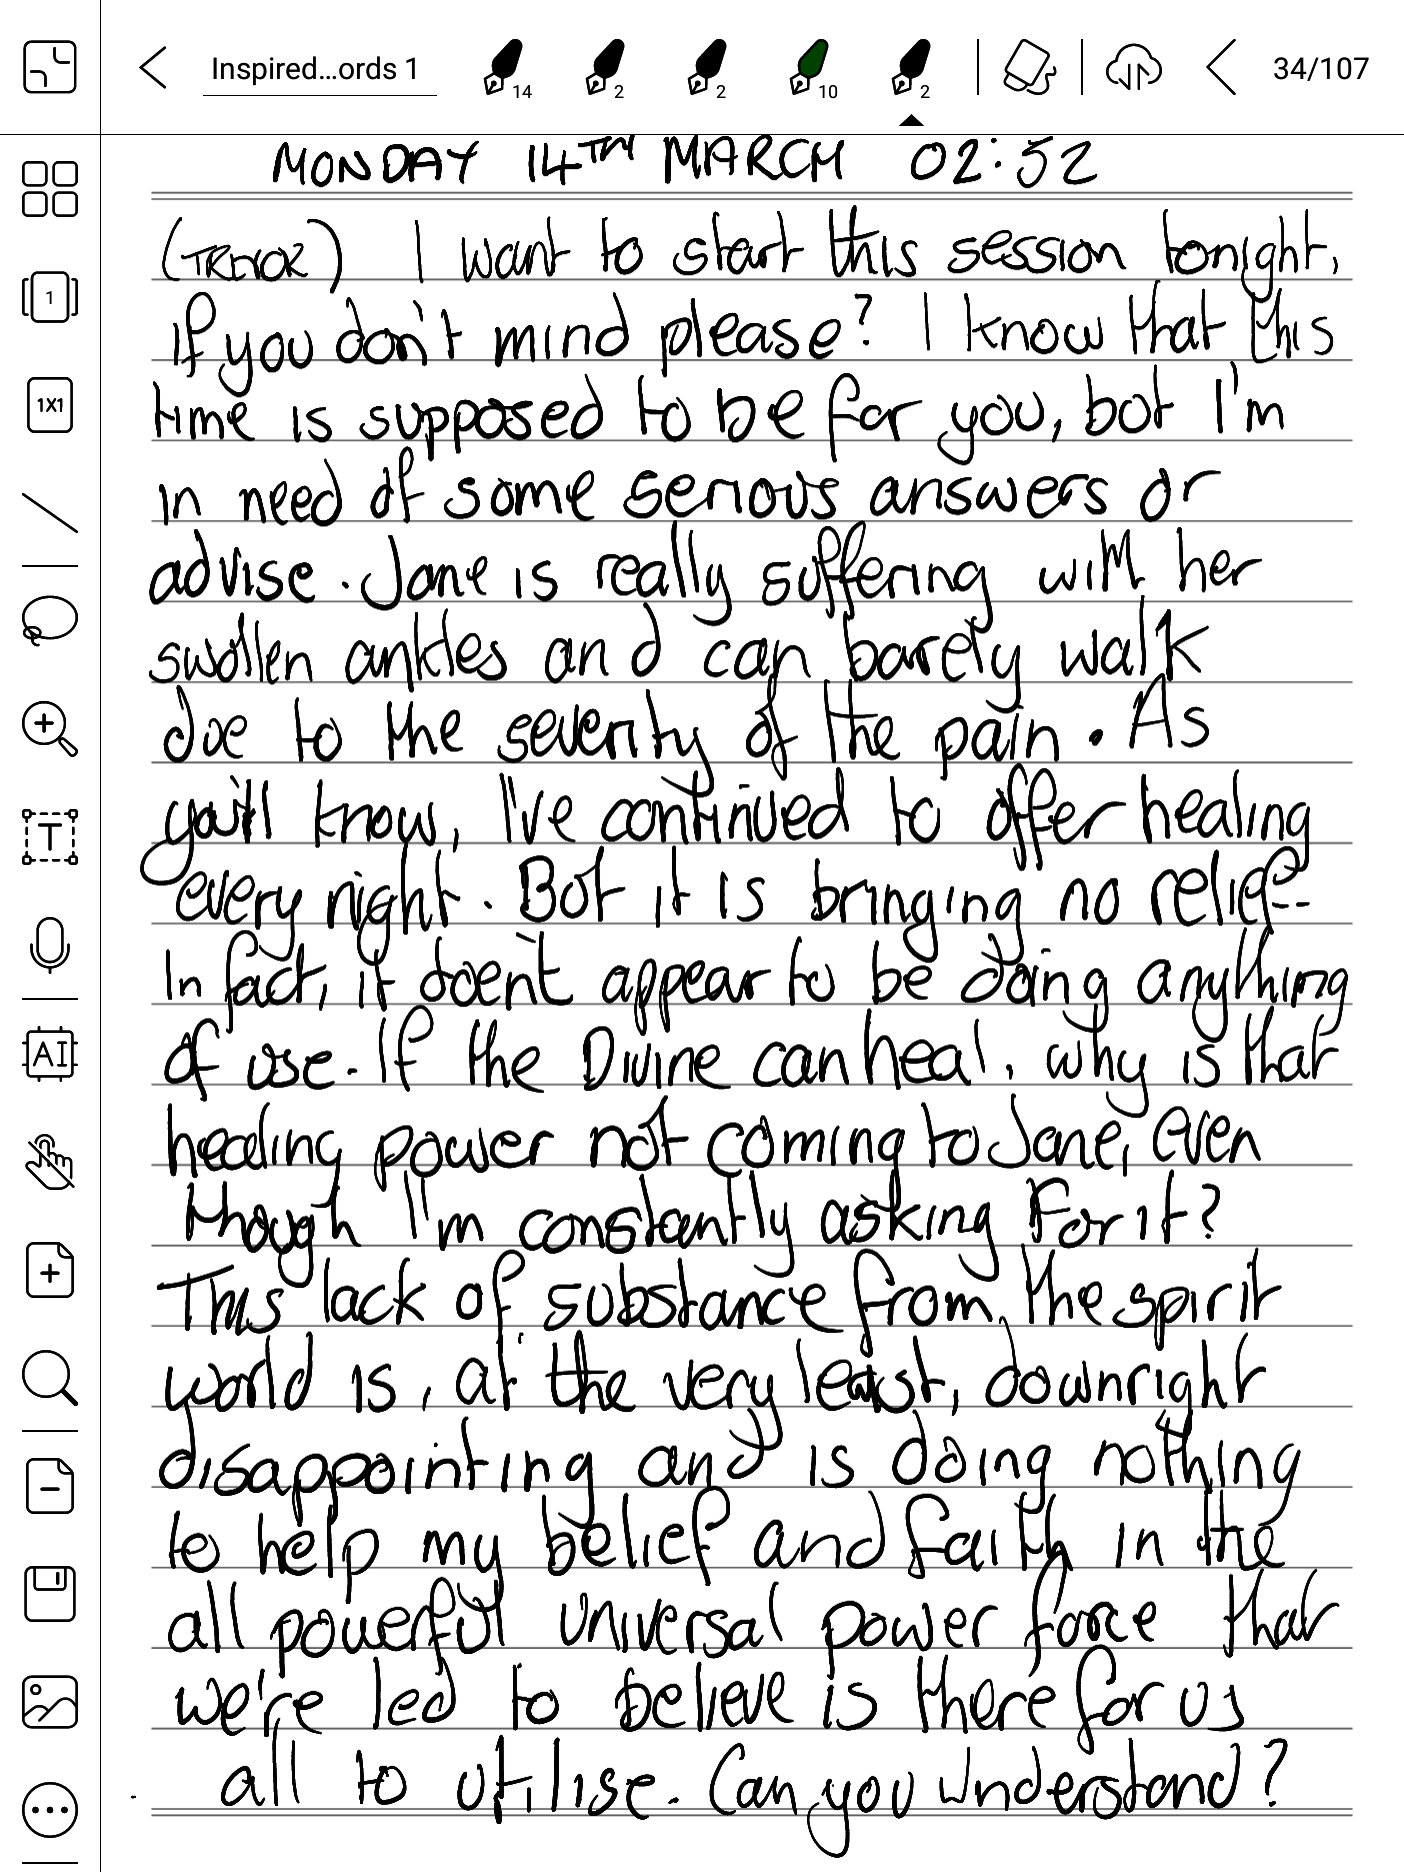 Inspired...ords 1
14
2
2
10
2
34/107
1
1X1
T
AI
MONDAY 14TH MARCH 02:52
(TREVOR) I want to start this session tonight,
if you don't mind please? I know that this
time is supposed to be for you, but I'm
in need of some serious answers or
advise. Jane is really suffering with her
swollen ankles and can barely walk
due to the severity of the pain. As
you'll know, I've continued to offer healing
every night. But it is bringing no relief--
In fact, it doen't appear to be doing anything
of use. If the Divine can heal, why is that
healing power not coming to Jane, even
though I'm constantly asking For it?
This lack of substance from the spirit
world is, at the very least, downright
disappointing and is doing nothing
to help my belief and faith in the
all powerful universal power force that
we're led to believe is there for us
all to utilise. Can you understand?